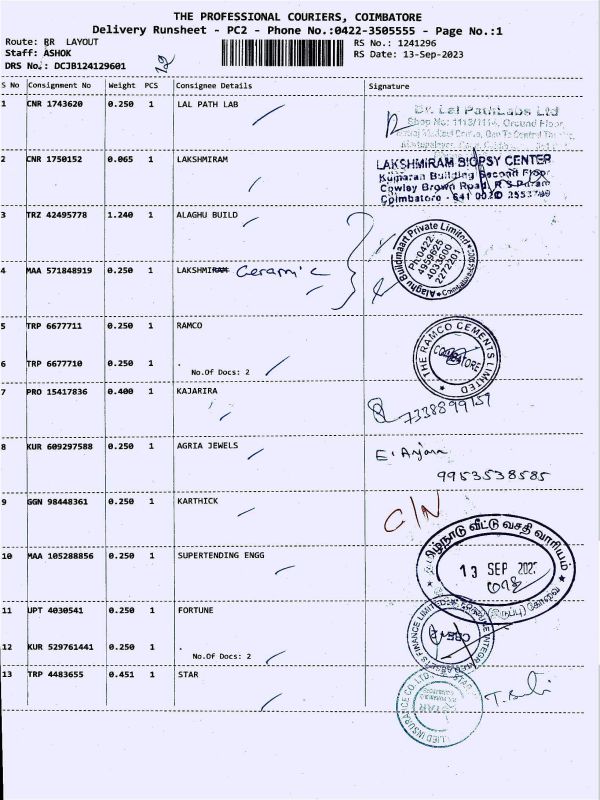 THE PROFESSIONAL COURIERS, COIMBATORE
Delivery Runsheet - PC2 - Phone No.:0422-3505555 - Page No.:1
Route: BR LAYOUT
RS No.: 1241296
Staff: ASHOK
RS Date: 13-Sep-2023
DRS No.: DCJB124129601
12
S No Consignment No Weight PCS Consignee Details Signature
1 CNR 1743620 0.250 1 LAL PATH LAB
Dr. Lal PathLabs Ltd
Shop No: 1113/1114, Ground Floor,
2 CNR 1750152 0.065 1 LAKSHMIRAM
LAKSHMIRAM BIOPSY CENTER
Kumaran Building Second Floor
Cowley Brown Road, R S Puram
Coimbatore - 641 002
3 TRZ 42495778 1.240 1 ALAGHU BUILD
Alaghu Buildmaart Private Limited
Ph:0422-
4959625
4033600
2272201
4 MAA 571848919 0.250 1 LAKSHMIRAM Ceramic
5 TRP 6677711 0.250 1 RAMCO
THE RAMCO CEMENTS LIMITED
COIMBATORE
6 TRP 6677710 0.250 1 .
No.Of Docs: 2
7 PRO 15417836 0.400 1 KAJARIRA
8 KUR 609297588 0.250 1 AGRIA JEWELS
E. Anjana
9953538585
9 GGN 98448361 0.250 1 KARTHICK
C/N
10 MAA 105288856 0.250 1 SUPERTENDING ENGG
தமிழ்நாடு வீட்டு வசதி வாரியம்
13 SEP 2023
11 UPT 4030541 0.250 1 FORTUNE
12 KUR 529761441 0.250 1 .
No.Of Docs: 2
13 TRP 4483655 0.451 1 STAR